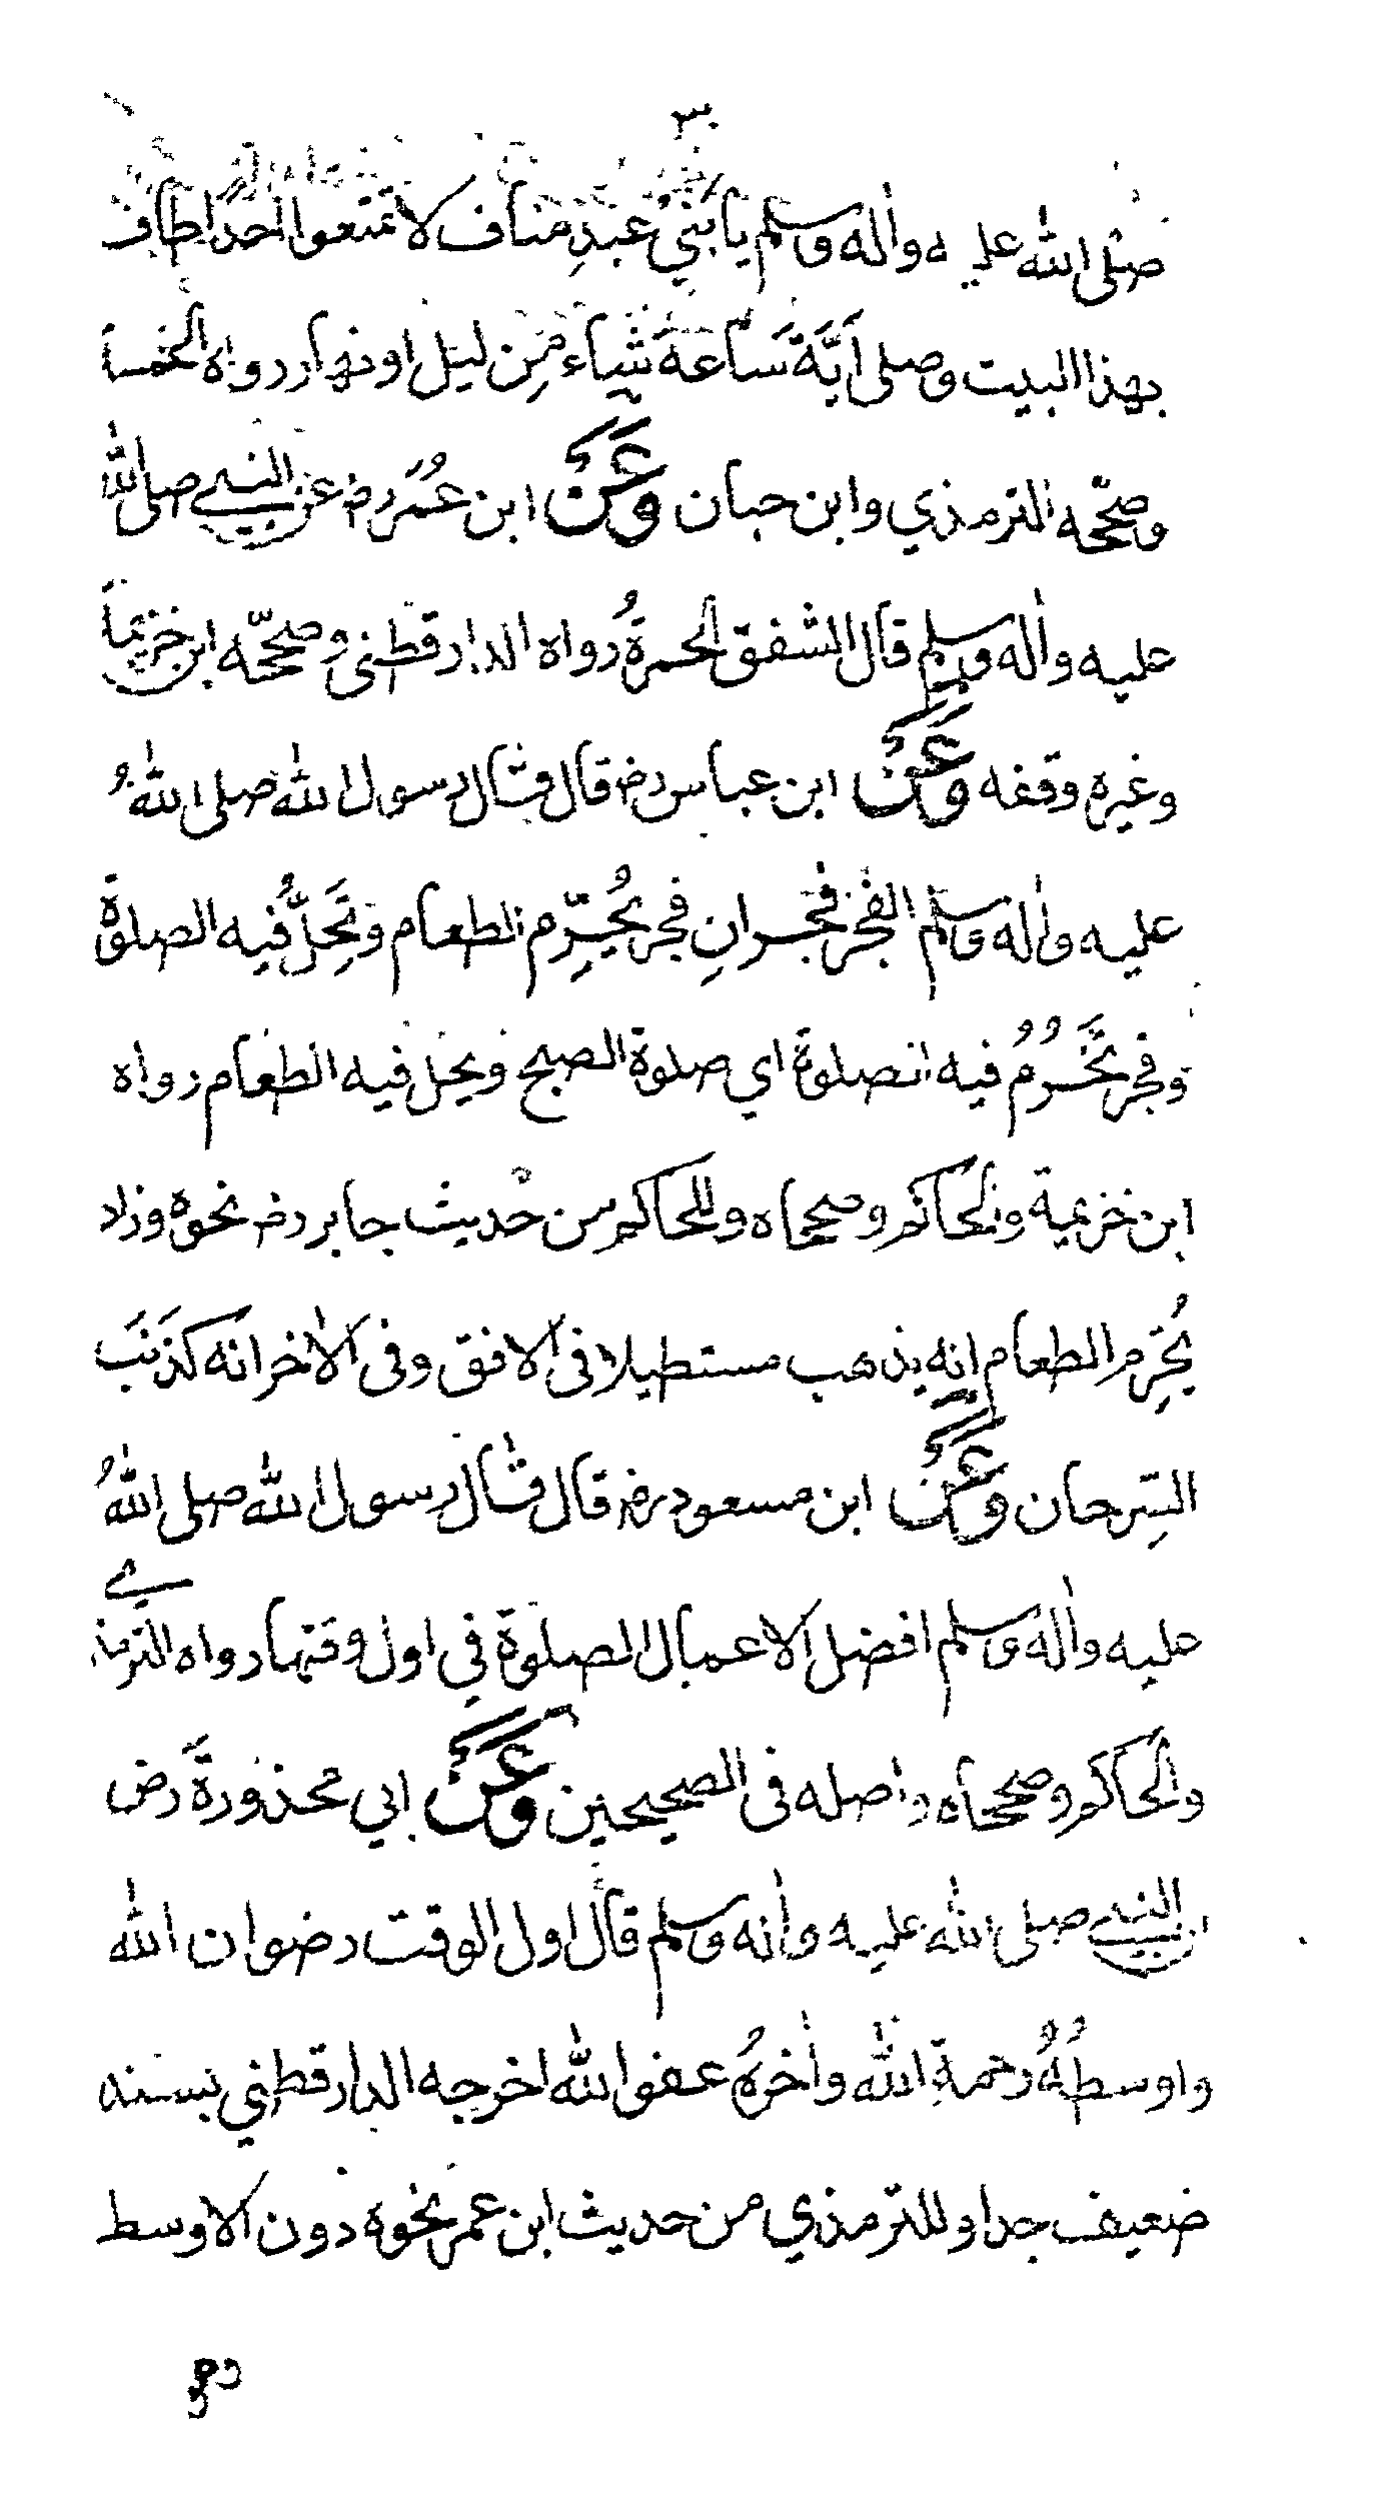 ٣٠
صلى الله عليه واٰله وسلم يا بَنِي عبدِ مناف لا تمنعوا احدًا طاف
بهذا البيت وصلى اَيَّةَ سَاعَةَ شاء مِن ليل او نهار رواه الخمسة
وصحّحه الترمذي وابن حبان وَعَنْ ابن عُمَر رض عن النبي صلى الله
عليه واٰله وسلم قال الشفق الحمرةُ رواه الدارقطنى وصحّحه ابن خزيمة
وغيره وقفه وَعَنْ ابن عباس رض قال قال رسول الله صلى اللهُ
عليه واٰله وسلم الفجر فجرانِ فجر يُحَرِّم الطعام وَتَحِلُّ فيه الصلوة
وفجر تَحْرُمُ فيه الصلوة اي صلوة الصبح ويحل فيه الطعام رواه
ابن خزيمة والحاكم وصححاه وللحاكم من حديث جابر رض نحوه وزاد
يُحَرِّم الطعام انه يذهب مستطيلا فى الافق وفى الاٰخر انه كذَنَبَ
السِرحان وَعَنْ ابن مسعود رض قال قال رسول الله صلى اللهُ
عليه واٰله وسلم افضل الاعمال الصلوة في اول وقتها رواه الترمذي
والحاكم وصححاه واصله فى الصحيحين وَعَنْ ابي محذورةَ رض
ان النبي صلى الله عليه واٰله وسلم قال اول الوقت رضوان الله
واوسطُهُ رحمةِ الله واٰخرهُ عفو الله اخرجه الدارقطني بسند
ضعيف جدا وللترمذي من حديث ابن عمر نحوه دون الاوسط